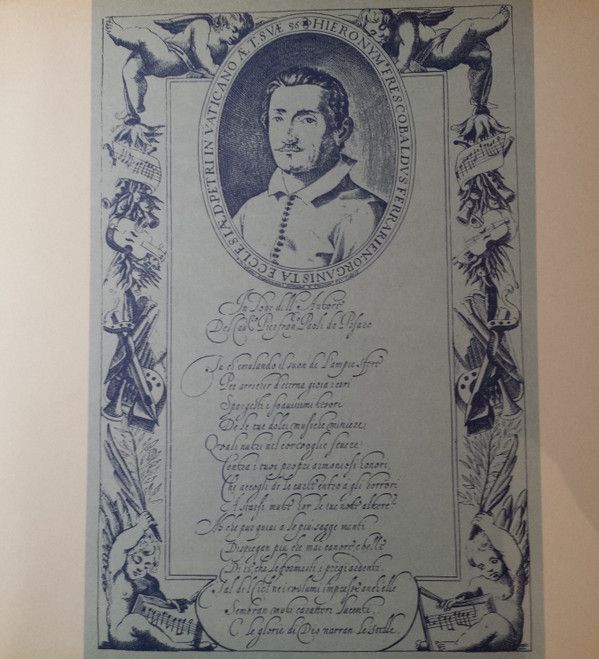 HIERONYM⁹ FRESCOBALDVS FERRARIEN. ORGANISTA ECCLESIÆ D. PETRI IN VATICANO ÆT. SVÆ 36
In Lode dell' Autore
Del Cau.re Pierfran.co Paoli da Pesaro
Tu ch'emulando il suon de l'ampie sfere
Per arrichir d'eterna gioia i cori
Spargesti i soauissimi tesori
De le tue dolci musiche miniere;
Quali nutri nel cor voglie seuere
Contra i tuoi proprij armoniosi honori,
Che accogli de le carte entro a gli horrori
A starsi mute hor le tue note altere?
Ah che pur quiui a le piu sagge menti
Dispiegan piu che mai canore e belle
Di che le formasti i pregi ardenti.
Tal del ciel ne volumi impresse anch'elle
Sembran muti caratteri lucenti,
E le glorie di Dio narran le stelle.